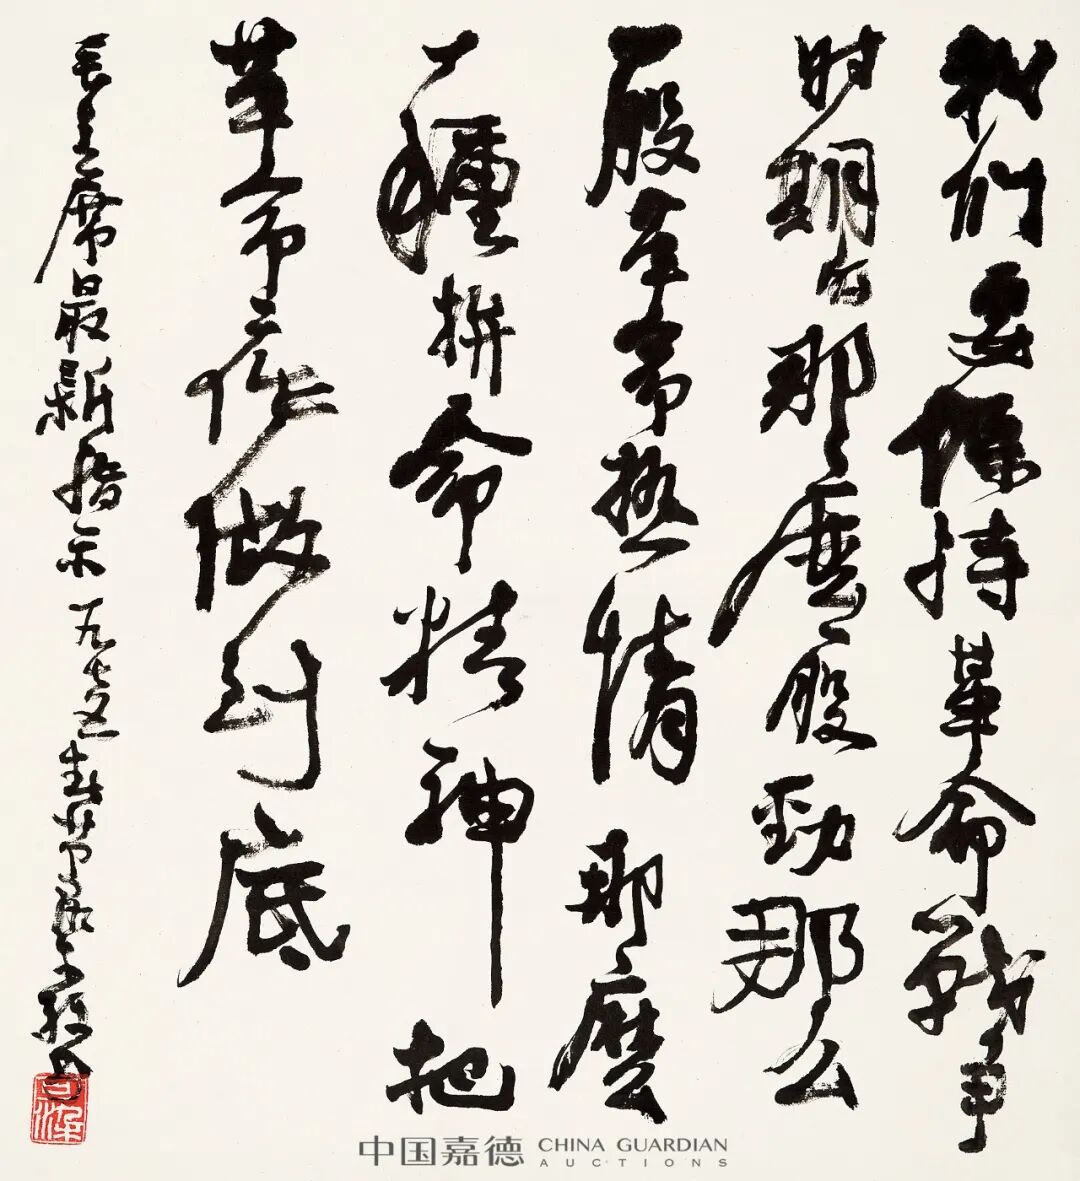 我们要保持革命戰争
时期的那麼一股劲那么
一股革命热情那麼
一種拚命精神把
革命工作做到底
毛主席最新指示 一九七五春
中国嘉德 CHINA GUARDIAN
AUCTIONS